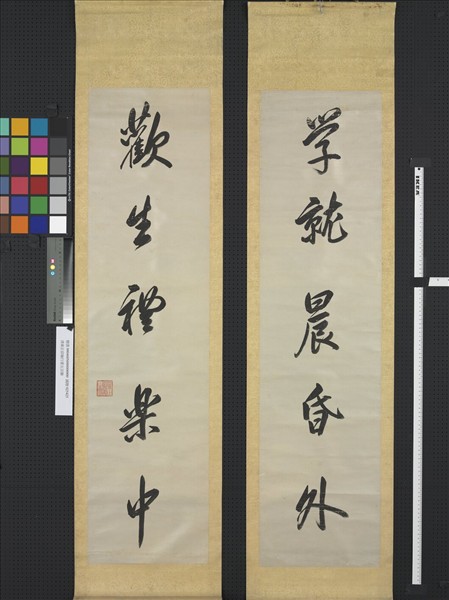 学就晨昏外
歡生禮樂中